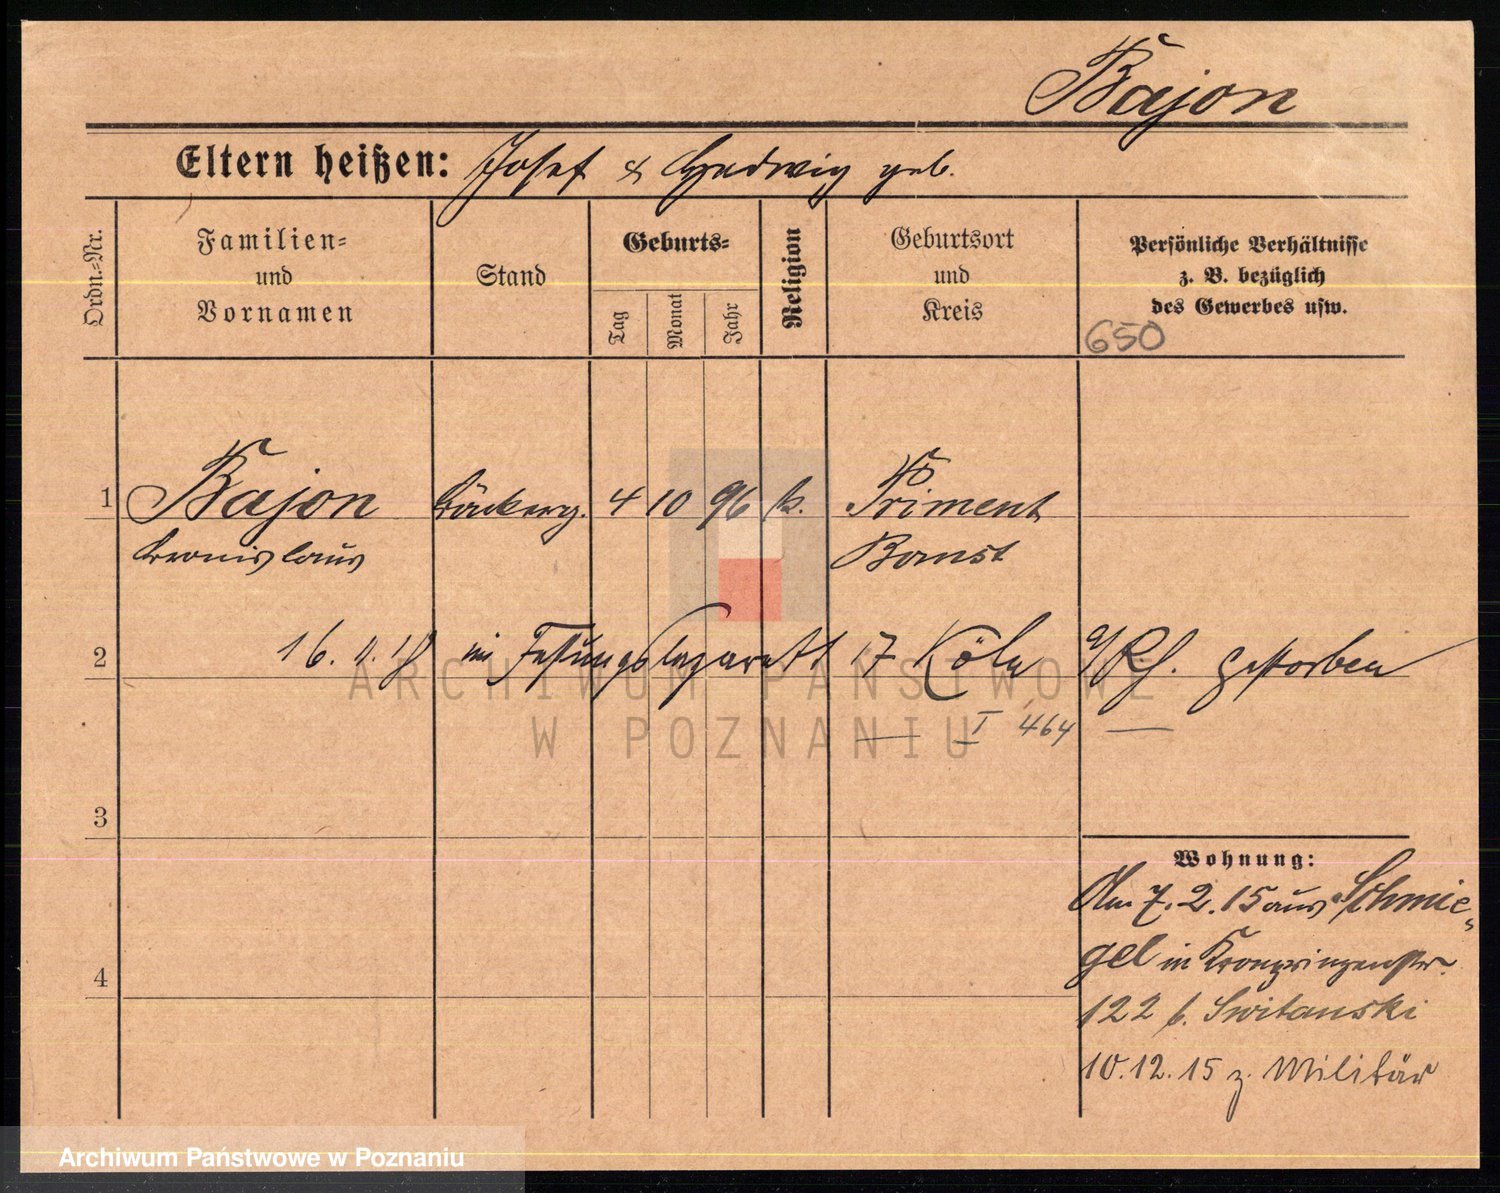 Bajon
Eltern heißen: Josef & Hedwig geb.
Ordn.-Nr.
Familien-
und
Vornamen
Stand
Geburts-
Tag
Monat
Jahr
Religion
Geburtsort
und
Kreis
Persönliche Verhältnisse
z. B. bezüglich
des Gewerbes usw.
650
1 Bajon Bäckerg. 4 10 96 k. Priment
Bronislaus Bomst
2 16. 11. 18 im Festungslazarett 17 Köln a/Rh. gestorben
I 464
3
4
Wohnung:
Am 7. 2. 15 aus Schmie-
gel in Kronprinzenstr.
122 b. Switanski
10. 12. 15 z. Militär
ARCHIWUM PAŃSTWOWE
W POZNANIU
Archiwum Państwowe w Poznaniu